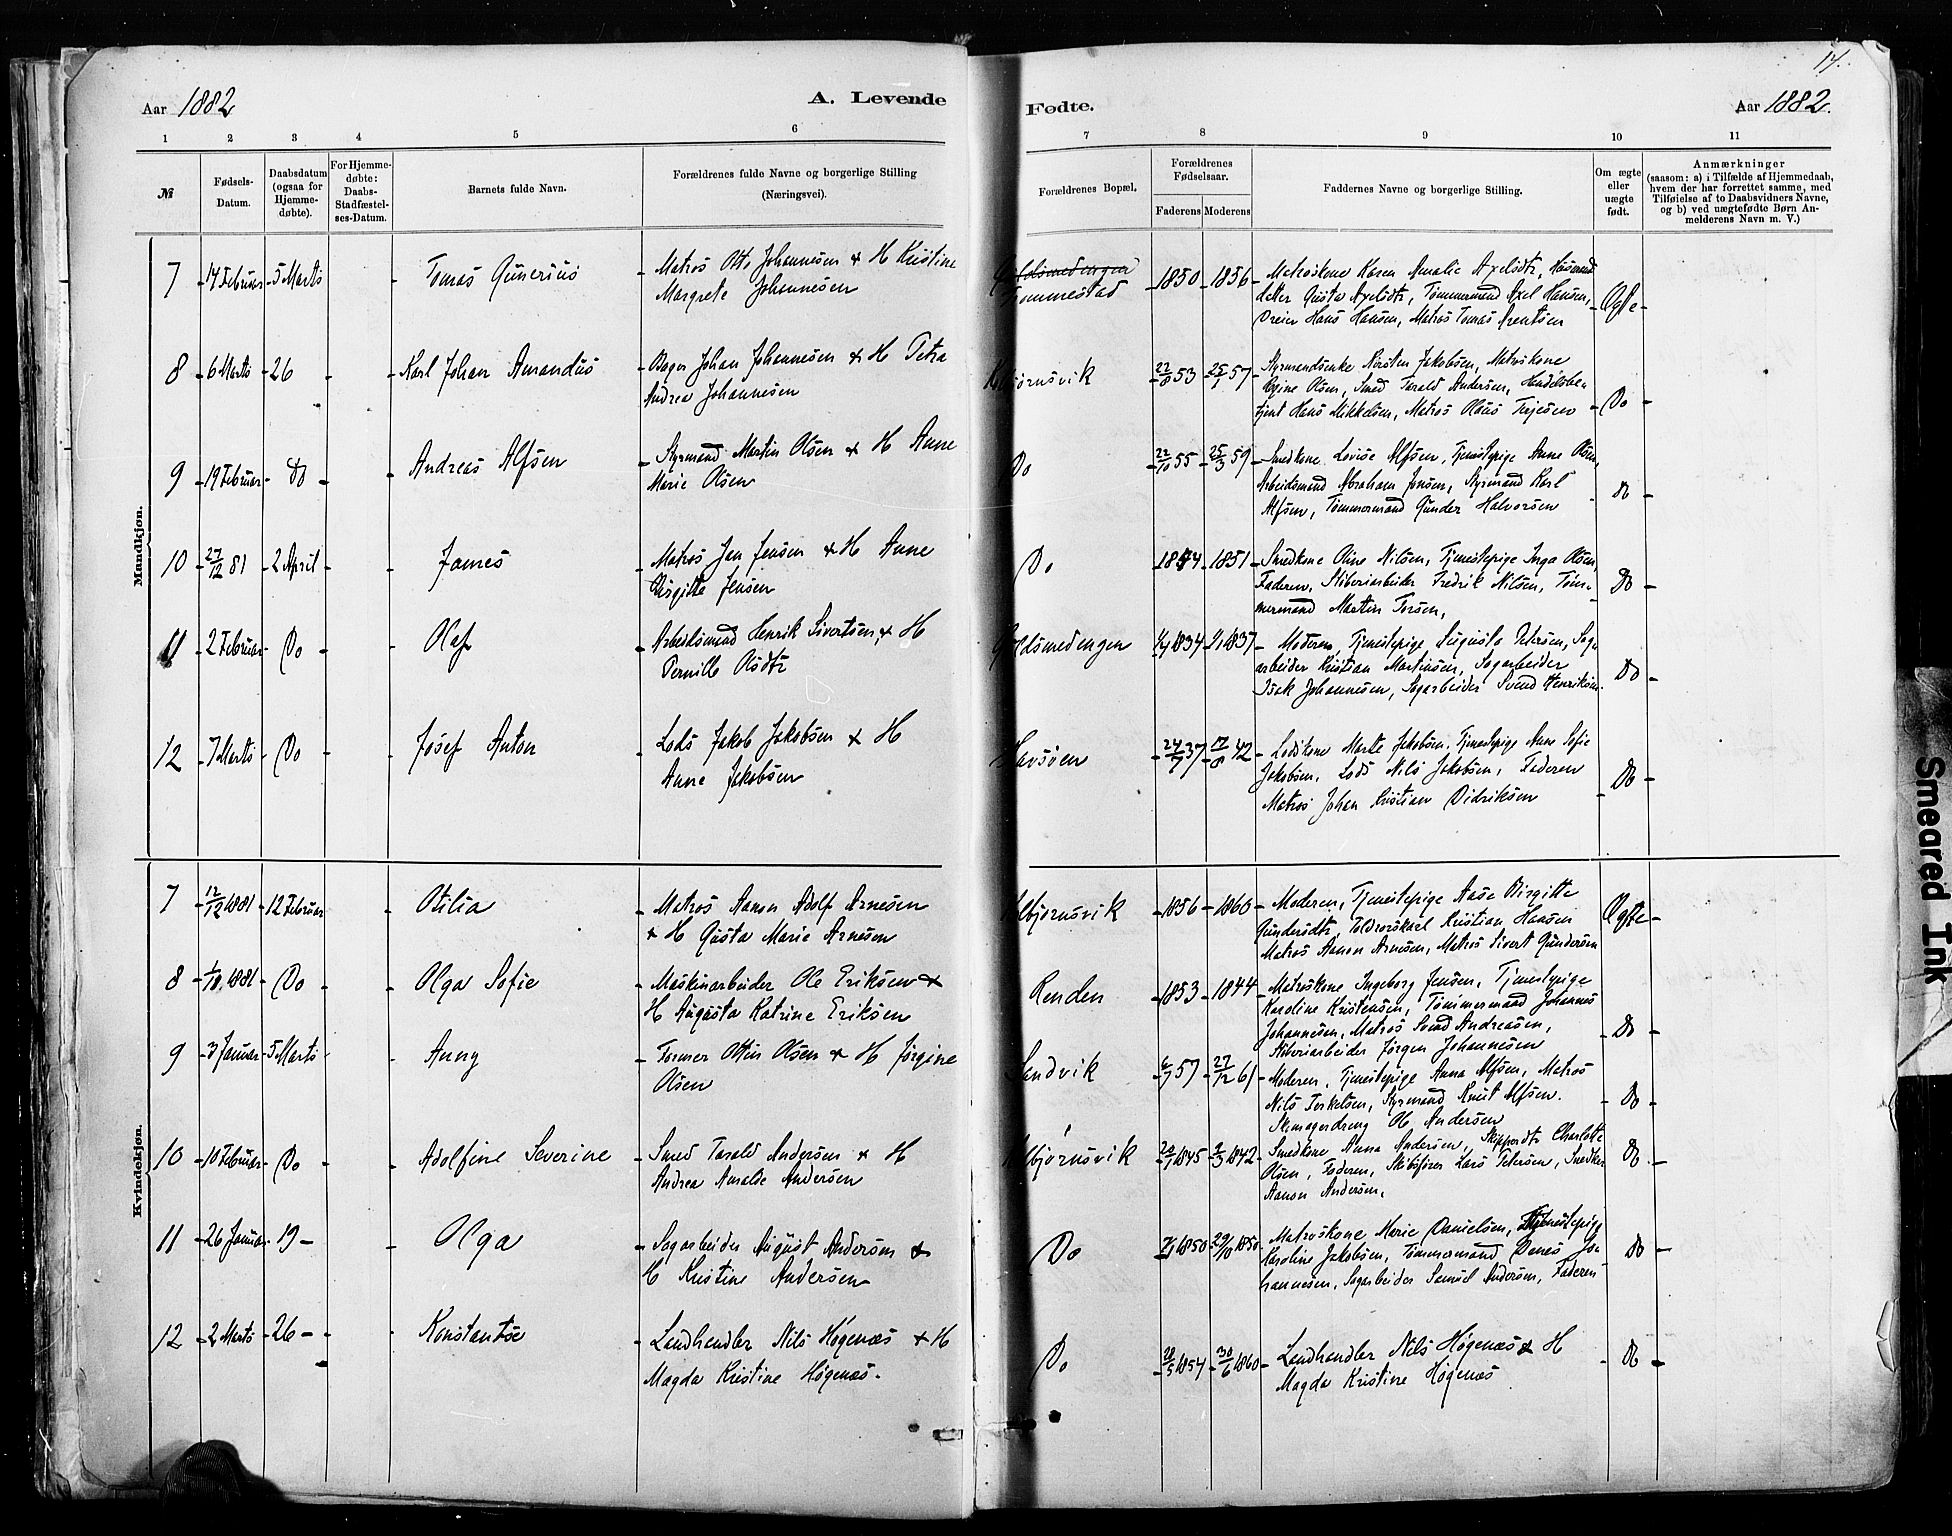 14.
Aar 1882
A. Levende
Fødte.
Aar 1882.
1 2 3 4 5 6 7 8 9 10 11
№
Fødsels-
Datum.
Daabsdatum
(ogsaa for
Hjemme-
døbte).
For Hjemme-
døbte:
Daabs-
Stadfæstel-
ses-Datum.
Barnets fulde Navn.
Forældrenes fulde Navne og borgerlige Stilling
(Næringsvei).
Forældrenes Bopæl.
Forældrenes
Fødselsaar.
Faderens
Moderens
Faddernes Navne og borgerlige Stilling.
Om ægte
eller
uægte
født.
Anmærkninger
(saasom: a) i Tilfælde af Hjemmedaab,
hvem der har forrettet samme, med
Tilføielse af to Daabsvidners Navne,
og b) ved uægtefødte Børn An-
melderens Navn m. V.)
Mandkjøn.
7 14 Februar 5 Marts Tomas Gunerius Matros Otto Johannesen & H Kristine
Margrete Johannesen
Tommestad 1850 1856 Matroskone Karen Amalie Axelsdtr,
datter Gusta Axelsdtr, Tømmermand Axel Hansen,
Dreier Hans Hansen, Matros Tomas Arentsen Ægte
8 6 Marts 26 Karl Johan Amandus Bager Johan Johannesen & H Petra
Andrea Johannesen
bjørnsvik 22/8 53 25/1 57 Styrmandsenke Kirsten Jakobsen, Matroskone
Olsen, Smed Tarald Andersen, Handelsbe-
tjent Hans Mikkelsen, Matros Olaus Terjesen Do
9 19 Februar Do Andreas Alfsen Styrmand Martin Olsen & H Anne
Marie Olsen
Do 22/10 55 25/3 59 Smedkone Lovise Alfsen, Tjenestepige Anne Olsen,
Arbeidsmand Abraham Jensen, Styrmand Karl
Alfsen, Tømmermand Gunder Halvorsen Do
10 27/12 81 2 April James Matros Jen Jensen & H Anne
Birgitte Jensen
Do 1854 1851 Smedkone Oline Nilsen, Tjenestepige Inga Olsen,
Faderen, Støberiarbeider Fredrik Nilsen, Tøm-
mermand Martin Tersen, Do
11 2 Februar Do Olaf Arbeidsmand Henrik Sivertsen & H
Pernille Olsdtr
Guldsmedengen 1/4 1834 1/1 1837 Moderen, Tjenestepige Augusta Petersen, Sag-
arbeider Kristian Martinsen, Sagarbeider
Isak Johannesen, Sagarbeider Svend Henriksen. Do
12 7 Marts Do Josef Anton Lods Jakob Jakobsen & H
Anne Jakobsen
Havsøen 24/9 37 17/8 42 Lodskone Marte Jakobsen, Tjenestepige Anne Sofie
Jakobsen, Lods Nils Jakobsen, Faderen
Matros Johan Kristian Didriksen Do
Kvindekjøn.
7 12/12 1881 12 Februar Otilia Matros Aanon Adolf Arnesen
& H Gusta Marie Arnesen
lbjørnsvik 1856 1860 Moderen, Tjenestepige Aase Birgitte
Gundersdtr, Toldrorskarl Kristian Hansen
Matros Aanon Arnesen, Matros Sivert Gundersen Ægte
8 1/10 1881 Do Olga Sofie Maskinarbeider Ole Eriksen &
H Augusta Katrine Eriksen
Renden 1853 1844 Matroskone Ingeborg Jensen, Tjenestepige
Karoline Kristensen, Tømmermand Johannes
Johannesen, Matros Svend Andreasen,
Støberiarbeider Jørgen Johannesen Do
9 3 Januar 5 Marts Anny Former Otto Olsen & H Jørgine
Olsen
Sandvik 6/7 57 27/12 61 Moderen, Tjenestepige Anna Alfsen, Matros
Nils Terkelsen, Styrmand Knut Alfsen.
Skomagerdreng Ole Andersen Do
10 10 Februar Do Adolfine Severine Smed Tarald Andersen & H
Andrea Amalde Andersen
lbjørnsvik 20/1 1845 2/3 1842 Smedkone Anna Andersen, Charlotte
Olsen, Faderen, Skibsfører Lars Petersen, Smed
Aanon Andersen. Do
11 26 Januar 19 Olga Sagarbeider August Andersen &
H Kristine Andersen
Do 7/1 1850 29/10 1850 Matroskone Marie Danielsen, Tjenestepige
Karoline Jakobsen, Tømmermand Jo-
hannesen, Sagarbeider Samuel Andersen, Faderen Do
12 2 Marts 26 Konstantse Landhandler Nils Høgenæs & H
Magda Kristine Høgenæs.
Do 28/5 1854 30/6 1860 Landhandler Nils Høgenæs & H
Magda Kristine Høgenæs Do
Smeared Ink